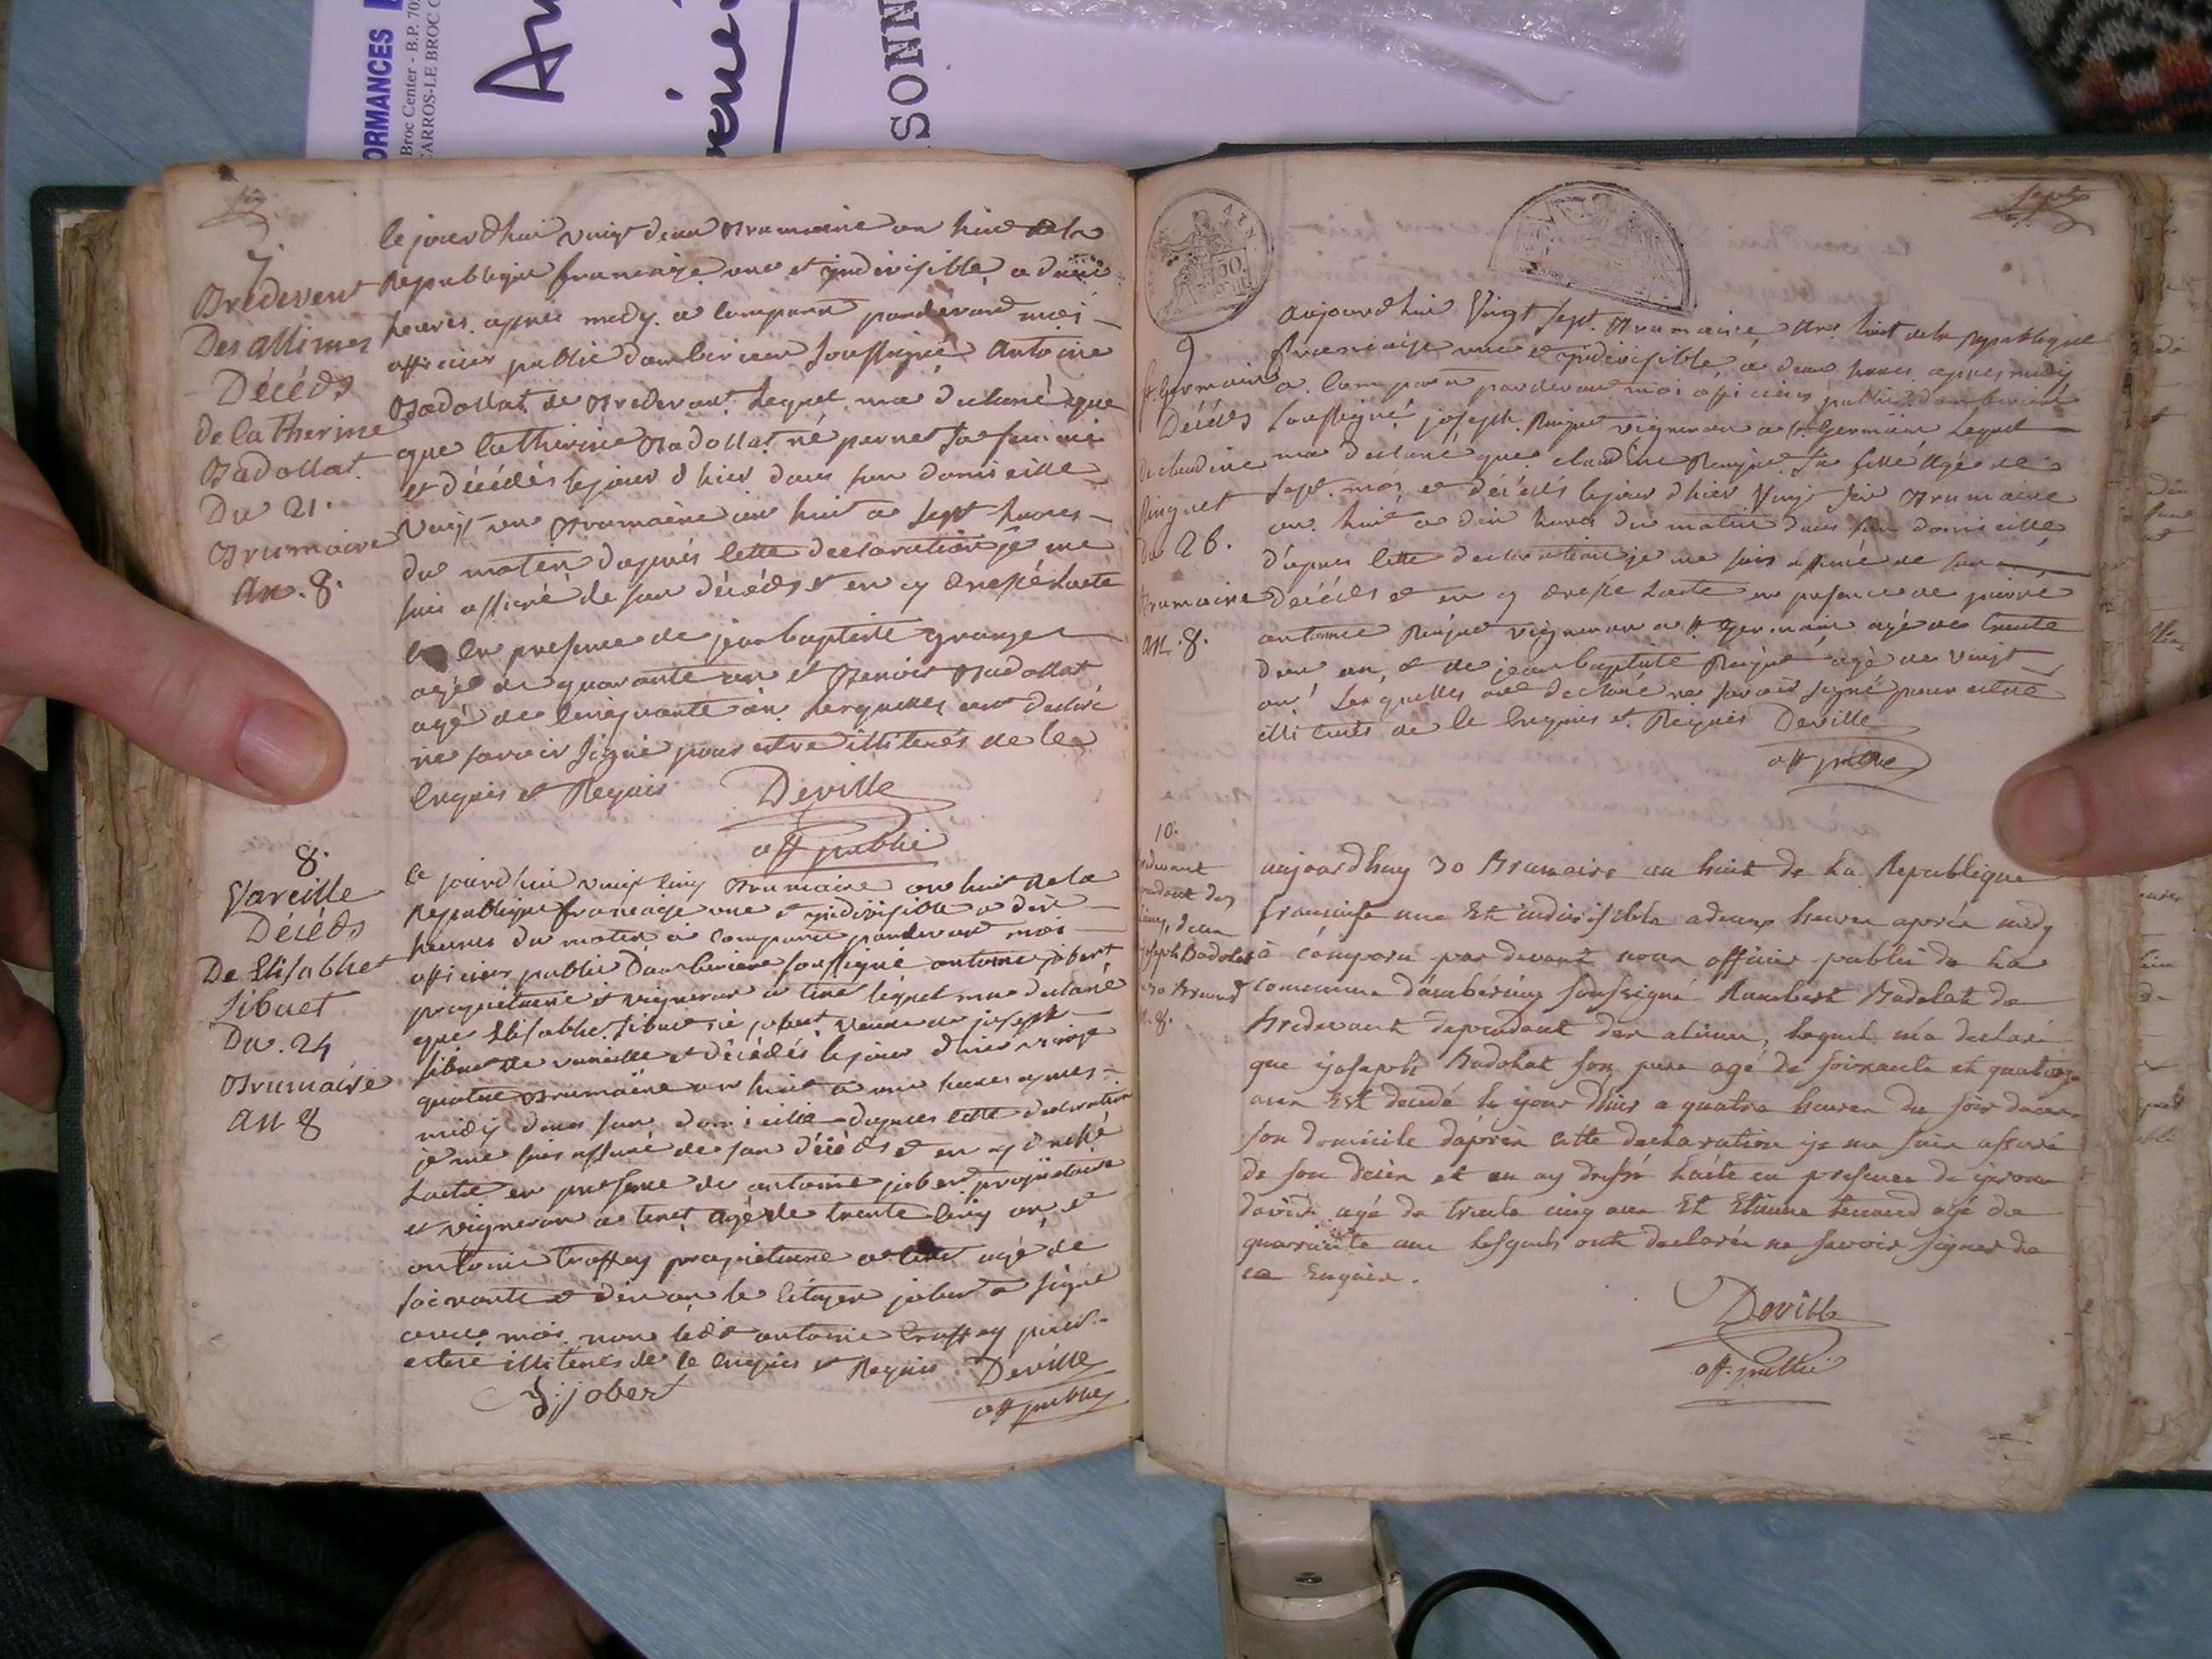 ORMANCES
Broc Center - B.P. 70
CARROS-LE BROC C
SONN
7
Brédevent
Des allimes
Décéds
de Catherine
Badollat
Du 21.
Brumaire
An. 8.
le jourdhui vingt deux Brumaire an huit de la
Republique francaise une et yndivisible a deux
heures apres medy a comparu pardevant moi
officier public dambérieu soussigné Antoine
Badollat de Bredevant Lequel ma declaré que
que Catherine Badollat né pernet sa femme
et décédés le jour d hier dans son domicille
vingt un Brumaire an huit a sept heures
du matin dapprés cette declaration je me
suis assuré de son décéds et en ay dressé lacte
en presence de jean baptiste grange
agé de quarante un et Benoit Badollat
agé de cinquante an Lesquelles ont declaré
ne savoir signé pour estre illiterés de ce
Enquis et Requis Deville
off public
8.
Vareille
Décéds
De Elisabhet
Sibuet
Du. 24
Brumaire
An 8
ce jourdhui vingt cinq Brumaire an huit de la
Republique francaise une et yndivisible a dix
heures du matin a comparu pardevant moi
officier public Dambérieu soussigné antoine jobert
propriétaire et vigneron a tiret lequel ma declaré
que Elisabhe Sibuet né jobert veuve de joseph
sibuet de vareille et décédés le jour d hier vingt
quatre Brumaire an huit a une heures apres
midy dans son domicille dapres cette declaration
je me suis assuré de son décéds et en ay dressé
Lacte en presence de antoine jobert propriétaire
et vigneron a tiret agé de trente cinq an et
antoine truffey propriétaire a tiret agé de
soixante et dix an le citoyen jobert a signé
avec moi non ledit antoine truffey pour
estre illiterés de ce Enquis et Requis Deville
jobert
off public
sept
9
St. Germain
Décéds
de claudine
du 26.
Brumaire
An. 8.
aujourdhui Vingt sept Brumaire, An huit de la Republique
francaise une et yndivisible a deux heures apres midy
a comparu pardevant moi officier public dambérieu
soussigné joseph vigneron a St Germain Lequel
ma declaré que claudine sa fille agé de
sept mois et décédés le jour d hier Vingt six Brumaire
an huit a dix heures du matin dans son domicille
d'apres cette declaration je me suis assuré de son
décéds et en ay dressé Lacte en presence de pierre
antoine vigneron a St Germain agé de trente
deux an, et de jean baptiste agé de vingt
an Lesquelles ont declaré ne savoir signé pour estre
illiterés de ce Enquis et Requis Deville
off public
10.
joseph Badolat
30 Brum
aujourdhuy 30 Brumaire an huit de La Republique
francaise une Et indivisible a deux heures après midy
à comparu par devant nous officier public de La
commune dambérieu soussigné Rambert Badolat de
Bredevent dependant des alimes, Lequel m'a declaré
que joseph Badolat son pere agé de soixante et quatorze
ans Est decedé le jour dhier a quatre heures du soir dans
son domicile dáprès cette declaration je me suis assuré
de son décès et en ay dressé Lacte en presence de
david agé de trente cinq ans Et Etienne tenand agé de
quarante ans Lesquels ont declarés ne savoir signer de
ce Enquis.
Deville
off. public